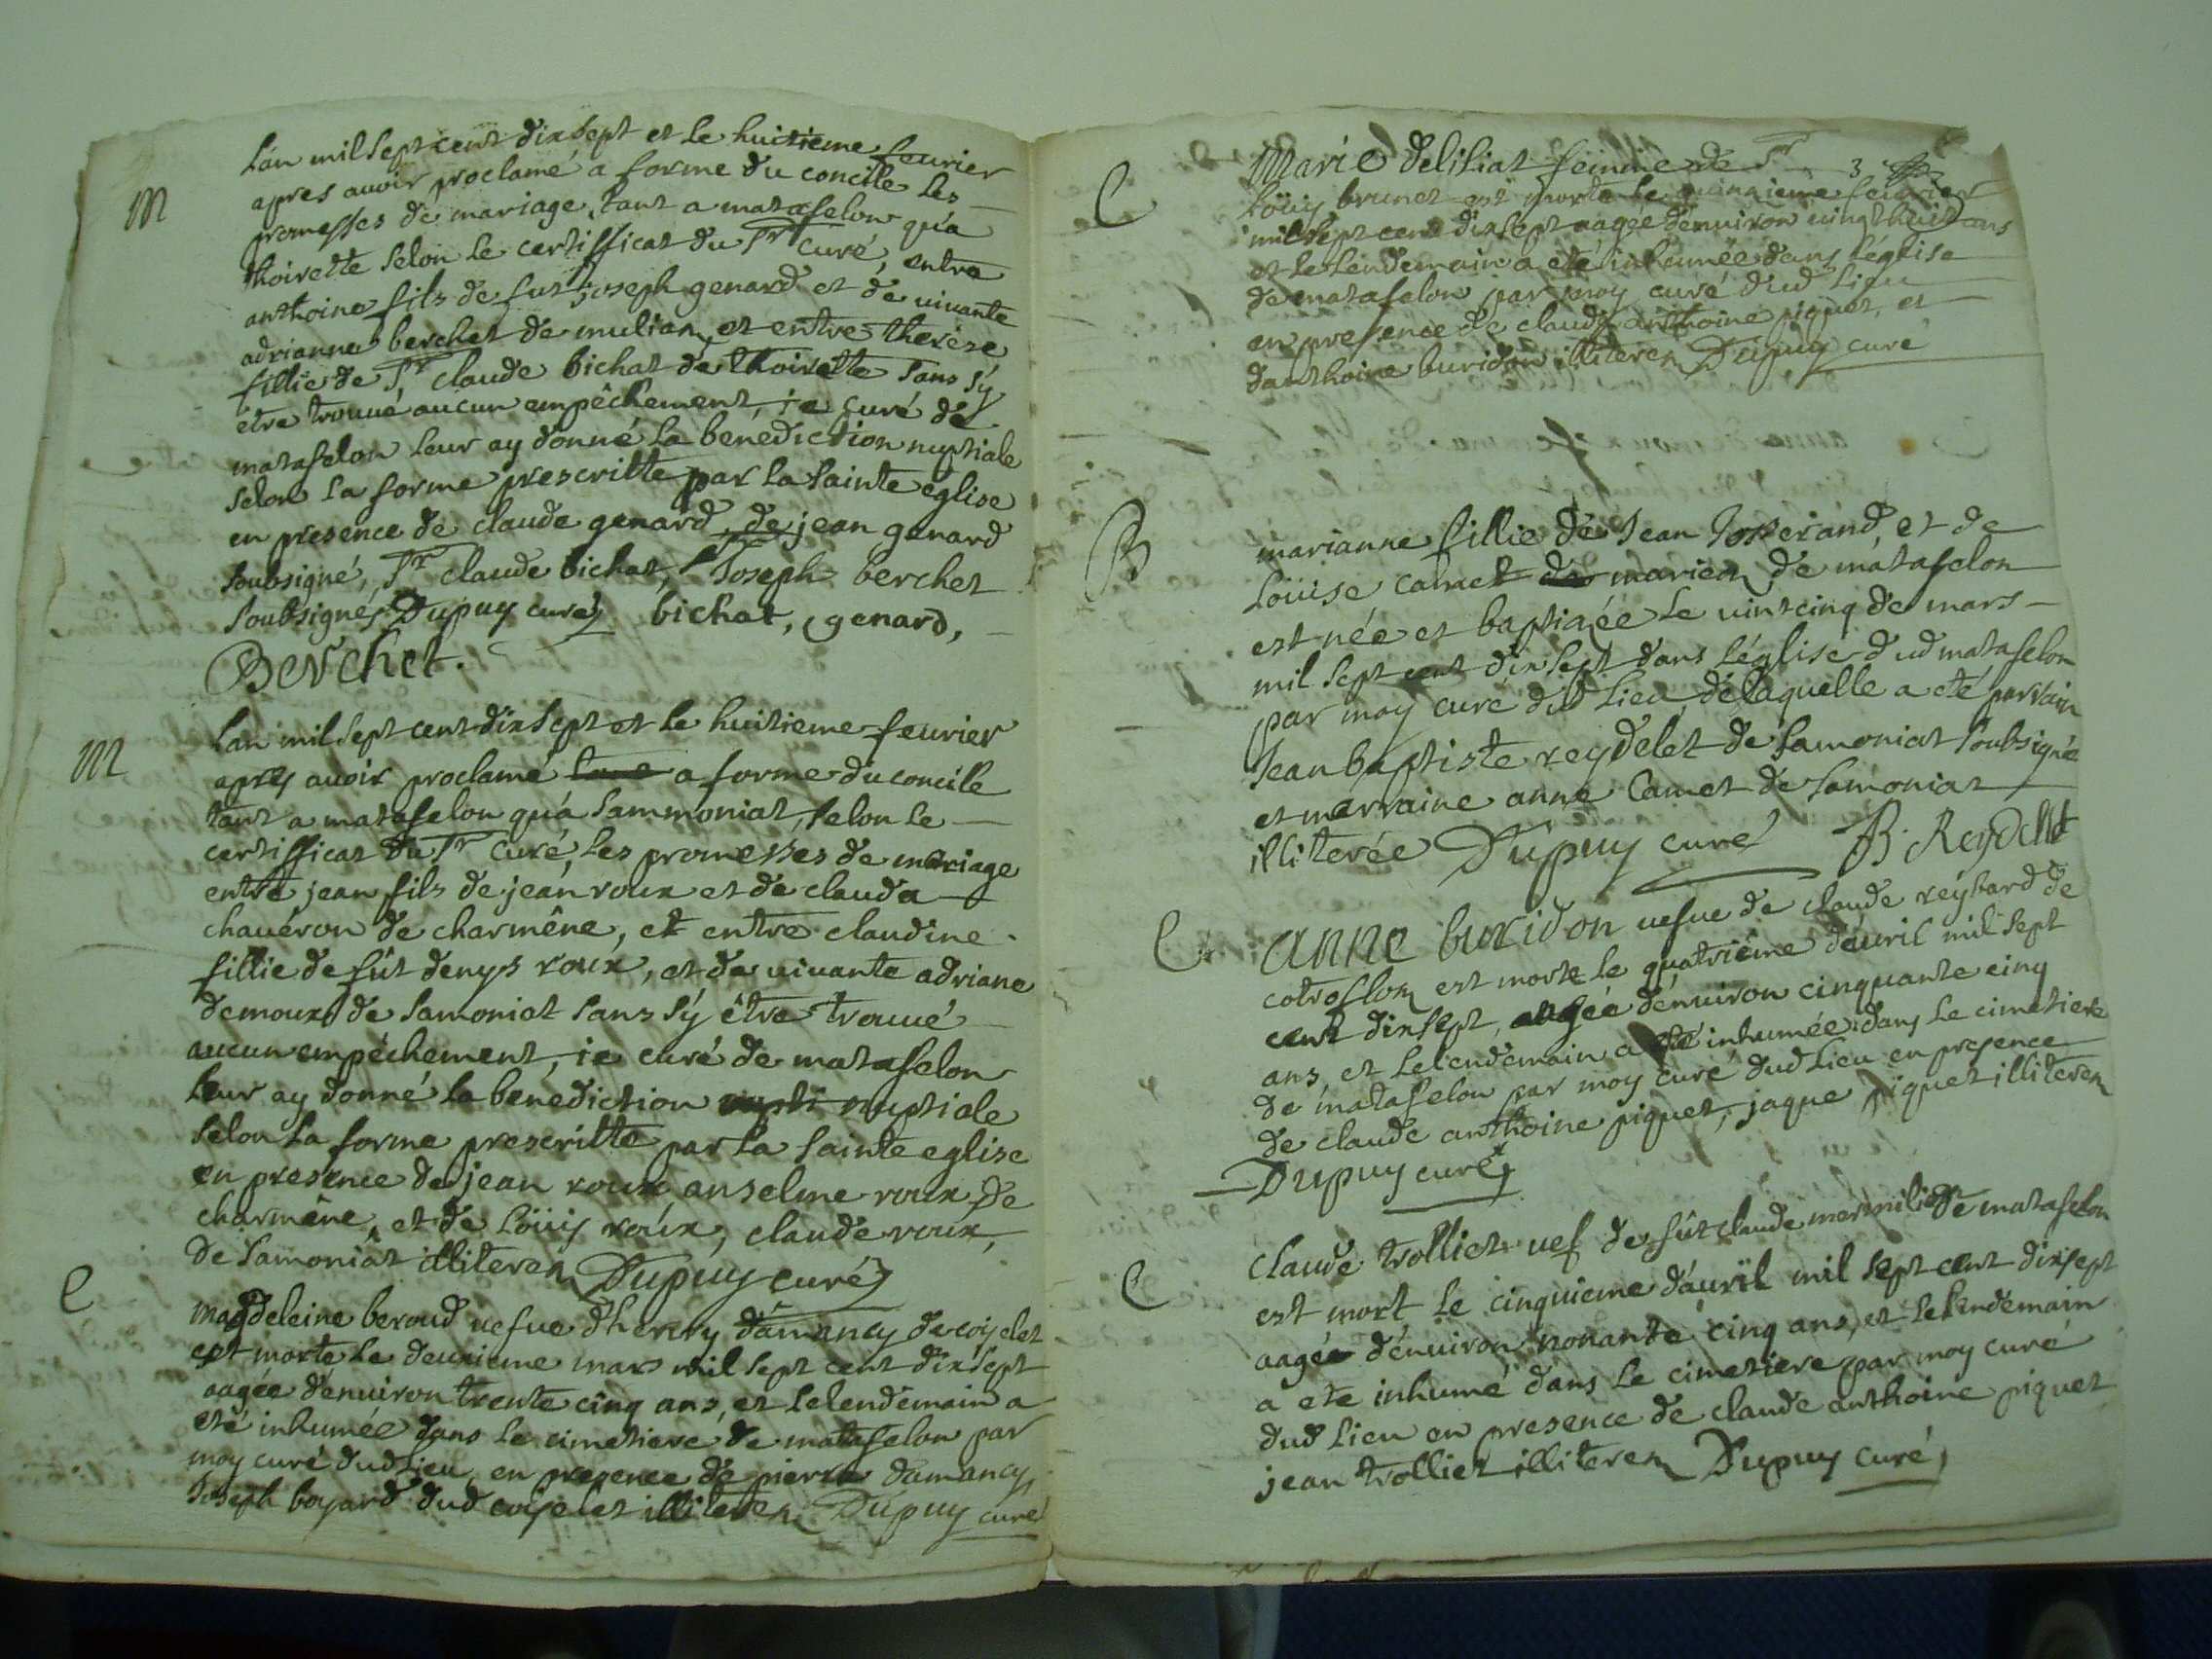 M
Lán mil sept cent dixsept et le huitieme feurier
apres auoir proclamé a forme du concile les
promesses de mariage, tant a matafelon qu'a
thoirette selon le certifficat du Sr curé, entre
anthoine fils de fut joseph genard et de uiuante
adrianne berchet de mulian, et entre therése
fillie de Sr claude bichat de thoirette sans s'y
etre trouué aucun empêchement, je curé de
matafelon leur ay donné la benediction nuptiale
selon la forme prescritte par la sainte eglise
en presence de claude genard, de jean genard
soubsigné, Sr claude bichat, Sr Joseph berchet
soubsignés Dupuy curé bichat, genard,
Berchet.
M
Lan mil sept cent dixsept et le huitieme feurier
apres auoir proclamé a forme du concile
tant a matafelon qu'a sammoniat, selon le
certifficat du Sr curé, les promesses de mariage
entre jean fils de jean roux et de clauda
chauéron de charmêne, et entre claudine
fillie de fût denys roux, et de uiuante adriane
demoux de samoniat sans s'y être trouué
aucun empéchement, je curé de matafelon
leur ay donné la benediction nupti nuptiale
selon la forme prescritte par la sainte eglise
en presence de jean roux anselme roux de
charmêne, et de Loüis roux, claude roux,
de samoniat illiteren Dupuy curé
C
magdeleine beroud uefue d'henry damancy de coiselet
est morte le deuxieme mars mil sept cent dixsept
aagée d'enuiron trente cinq ans, et le lendemain a
eté inhumée dans le cimetiere de matafelon par
moy curé dud lieu en presence de pierre damancy,
Joseph boyard dud coiselet illiteren Dupuy curé
3
C
Marie deliliat femme de Sr
Loüis brunet est morte le quinzieme feurier
mil sept cent dixsept aagée d'enuiron uingthuit ans
et le lendemain a eté inhumée dans l'église
de matafelon par moy curé dud lieu
en presence de claude anthoine piquet, et
d'anthoine buridon illiteren Dupuy curé
B
marianne fillie de Jean Josserand, et de
Loüise camet mariez de matafelon
est née et baptizée le uintcinq de mars
mil sept cent dixsept dans l'église dud matafelon
par moy curé dud lieu, de laquelle a eté parrain
Jean baptiste reydelet de samoniat soubsigné
et marraine anne Camet de samoniat
illiterée Dupuy curé B. Reydelet
C
anne buridon uefue de claude reybard de
cotroflon est morte le quatriême d'auril mil sept
cent dixsept, aagée d'enuiron cinquante cinq
ans, et le lendemain a eté inhumée dans le cimetiere
de matafelon par moy curé dud lieu en presence
de claude anthoine piquet, jaque piquet illiteren
Dupuy curé
C
claude trolliet uef de fût claude mermilie de matafelon
est mort le cinquieme d'auril mil sept cent dixsept
aagée d'enuiron nonante cinq ans, et le lendemain
a ete inhumé dans le cimetiere par moy curé
dud lieu en presence de claude anthoine piquet
jean trolliet illiteren Dupuy curé